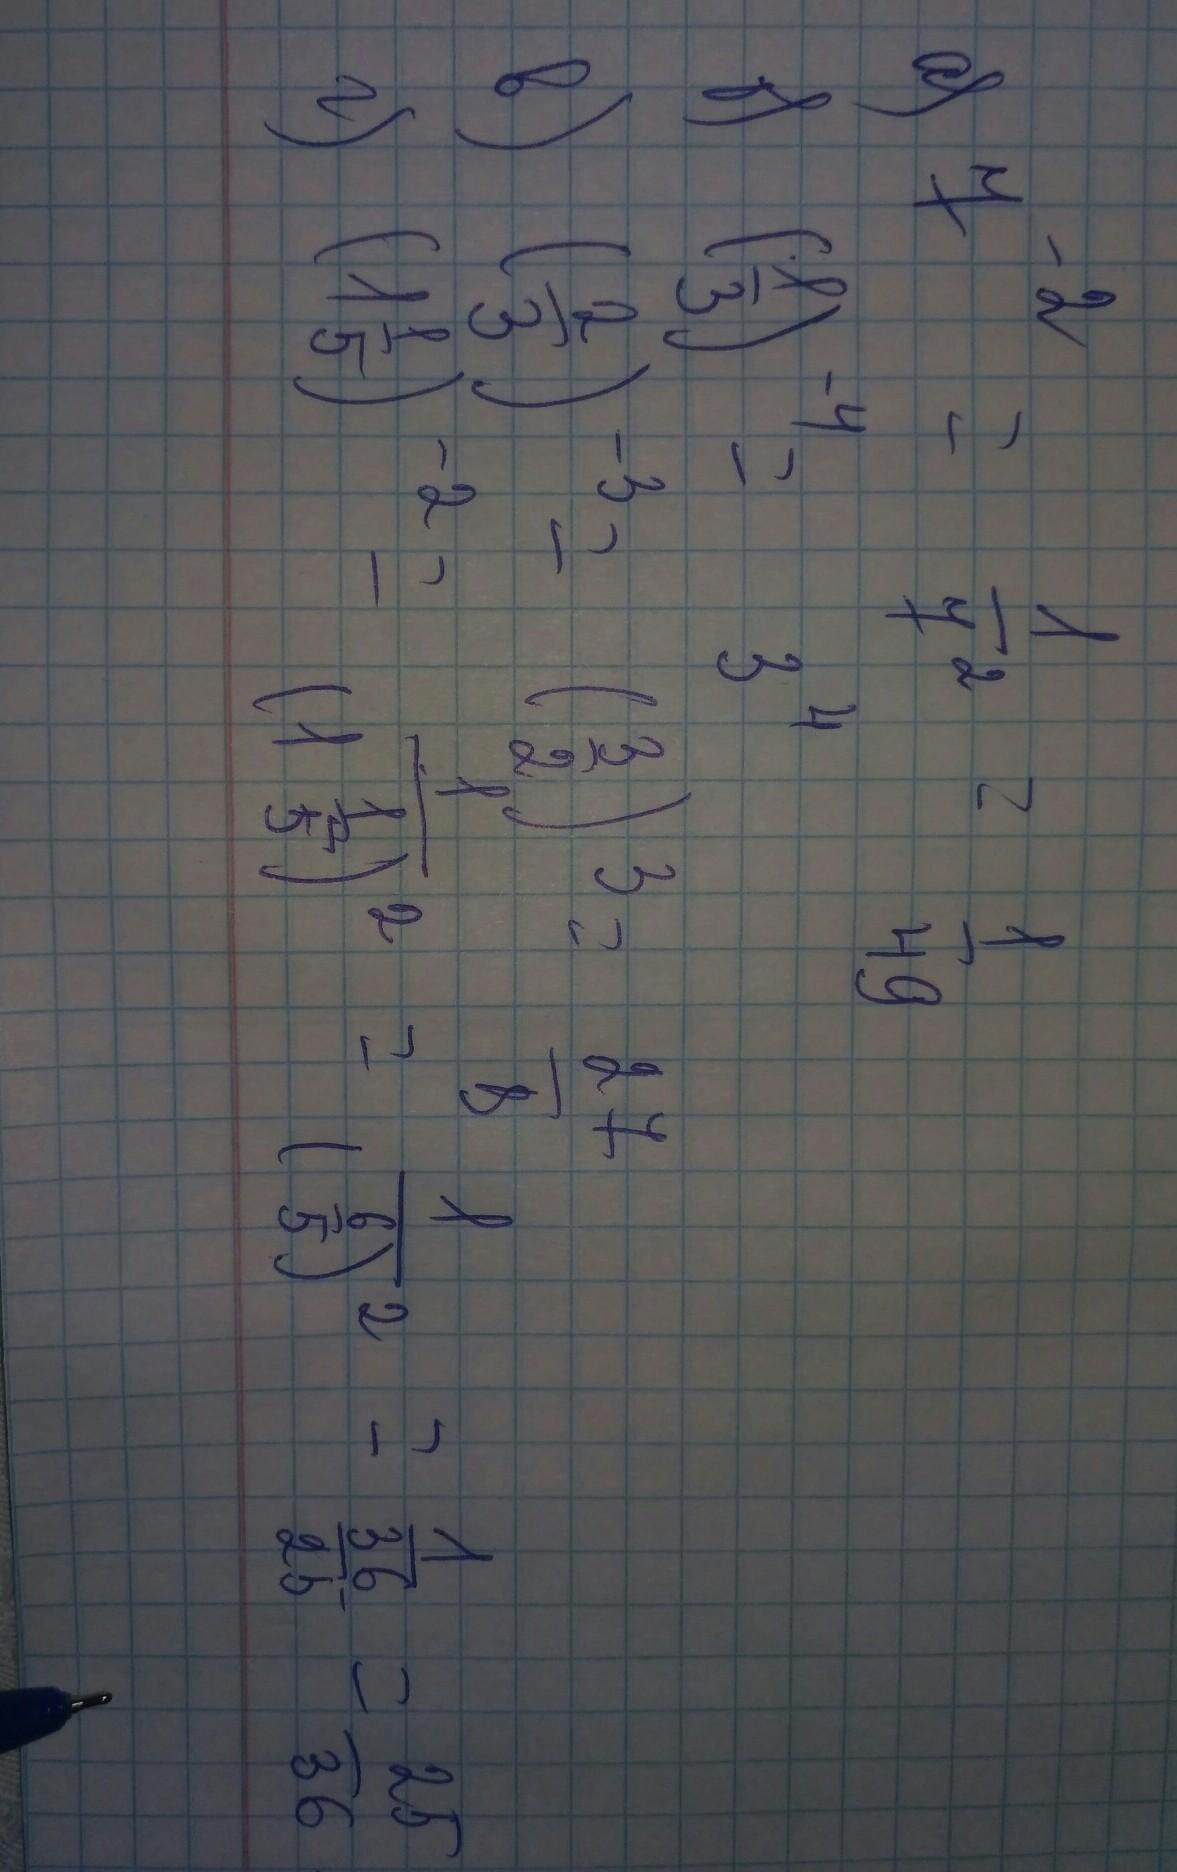 а) 7^-2 = 1/7^2 = 1/49
б) (1/3)^-4 = 3^4
в) (2/3)^-3 = (3/2)^3 = 27/8
г) (1 1/5)^-2 = 1/(1 1/5)^2 = 1/(6/5)^2 = 1/(36/25) = 25/36